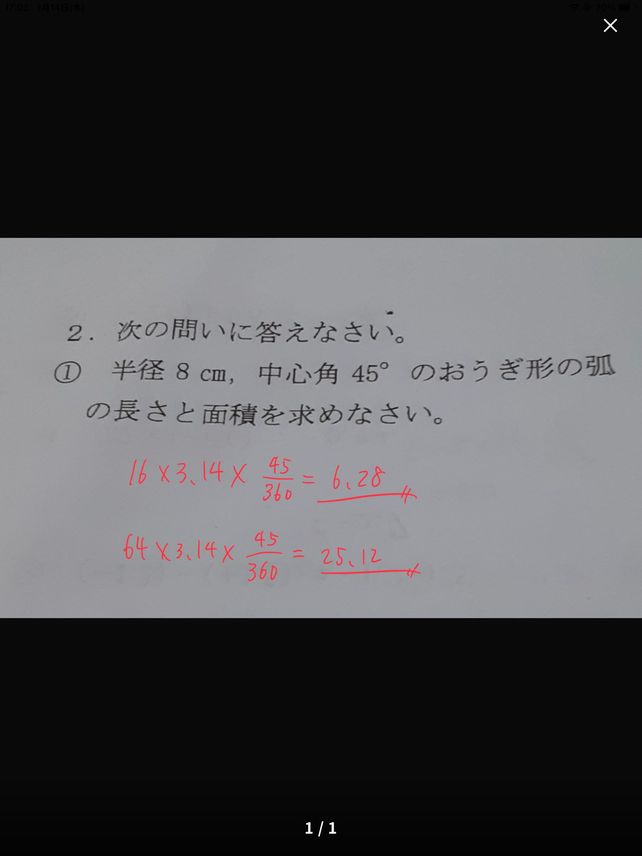 17:02 1月14日(木)
70%
2. 次の問いに答えなさい。
① 半径 8 cm, 中心角 45° のおうぎ形の弧
の長さと面積を求めなさい。
16×3.14× 45/360 = 6.28
64×3.14× 45/360 = 25.12
1 / 1